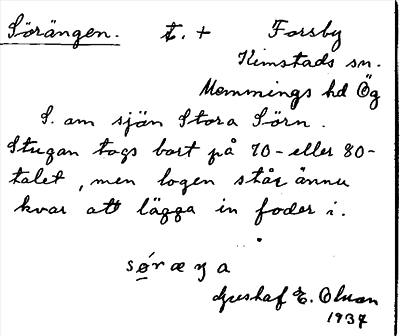 Sörängen. t. + Forsby
Kimstads sn.
Memmings hd Ög
S. om sjön Stora Sörn.
Stugan togs bort på 70- eller 80-
talet, men logen står ännu
kvar att lägga in foder i.
sǿræŋa
Gustaf E. Olson
1934